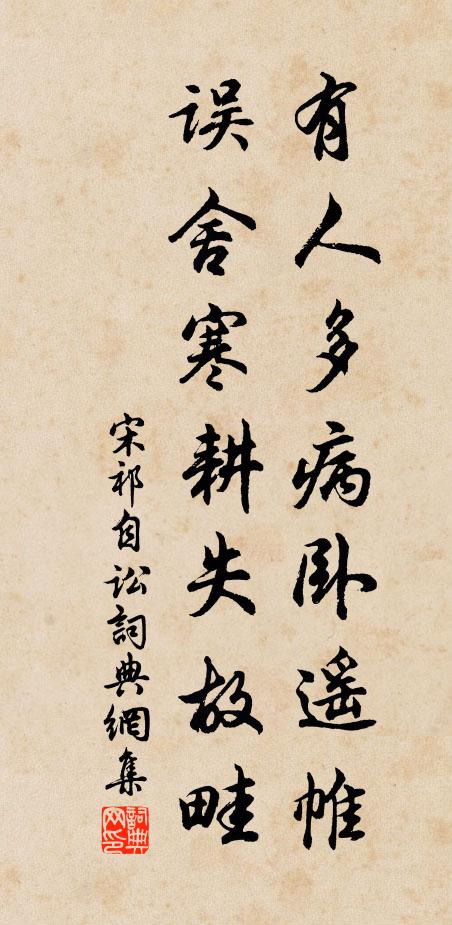 有人多病卧遥帷
误舍寒耕失故畦
宋祁自讼詞典網集
詞典网印